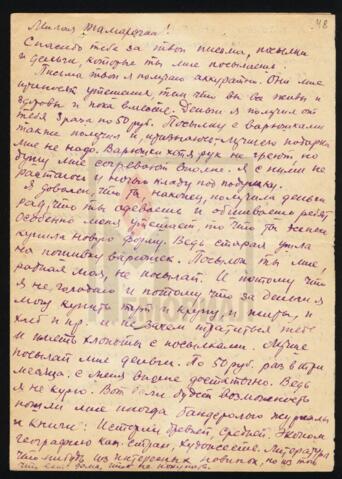 48
Милая Тамарочка!
Спасибо тебе за твои письма, посылки
и деньги, которые ты мне посылаешь.
Письма твои я получаю аккуратно. Они мне
приносят утешение тем что вы все живы и
здоровы и пока вместе. Деньги я получил от
тебя 3 раза по 50 руб. Посылку с варежками
также получил и признаюсь лучшего подарка
мне не надо. Варежки хотя рук не греют, но
душу мне согревают вполне. Я с ними не
расстаюсь и ночью кладу под подушку.
Я доволен, что ты, наконец, получила деньги
рад, что ты одеваешь и обшиваешь ребят
Особенно меня утешает, то что ты Жене
купила новую форму. Ведь старая ушла
на починку варежек. Посылок ты мне!
родная моя, не посылай. И потому что
я не голодаю и потому что за деньги я
могу купить тут и крупу, и жиры, и
хлеб и пр. и не зачем тратиться тебе
и иметь хлопоты с посылками. Лучше
посылай мне деньги. По 50 руб. раз в три
месяца, с меня вполне достаточно. Ведь
я не курю. Вот если будет возможность
пошли мне иногда бандеролью журналы
и книги: Истории древней, средней, Эконом
географию кап. стран, художеств. литературу
что нибудь из интересных новинок, но из того
что есть дома, что не покупать.
МЕМОРИАЛ